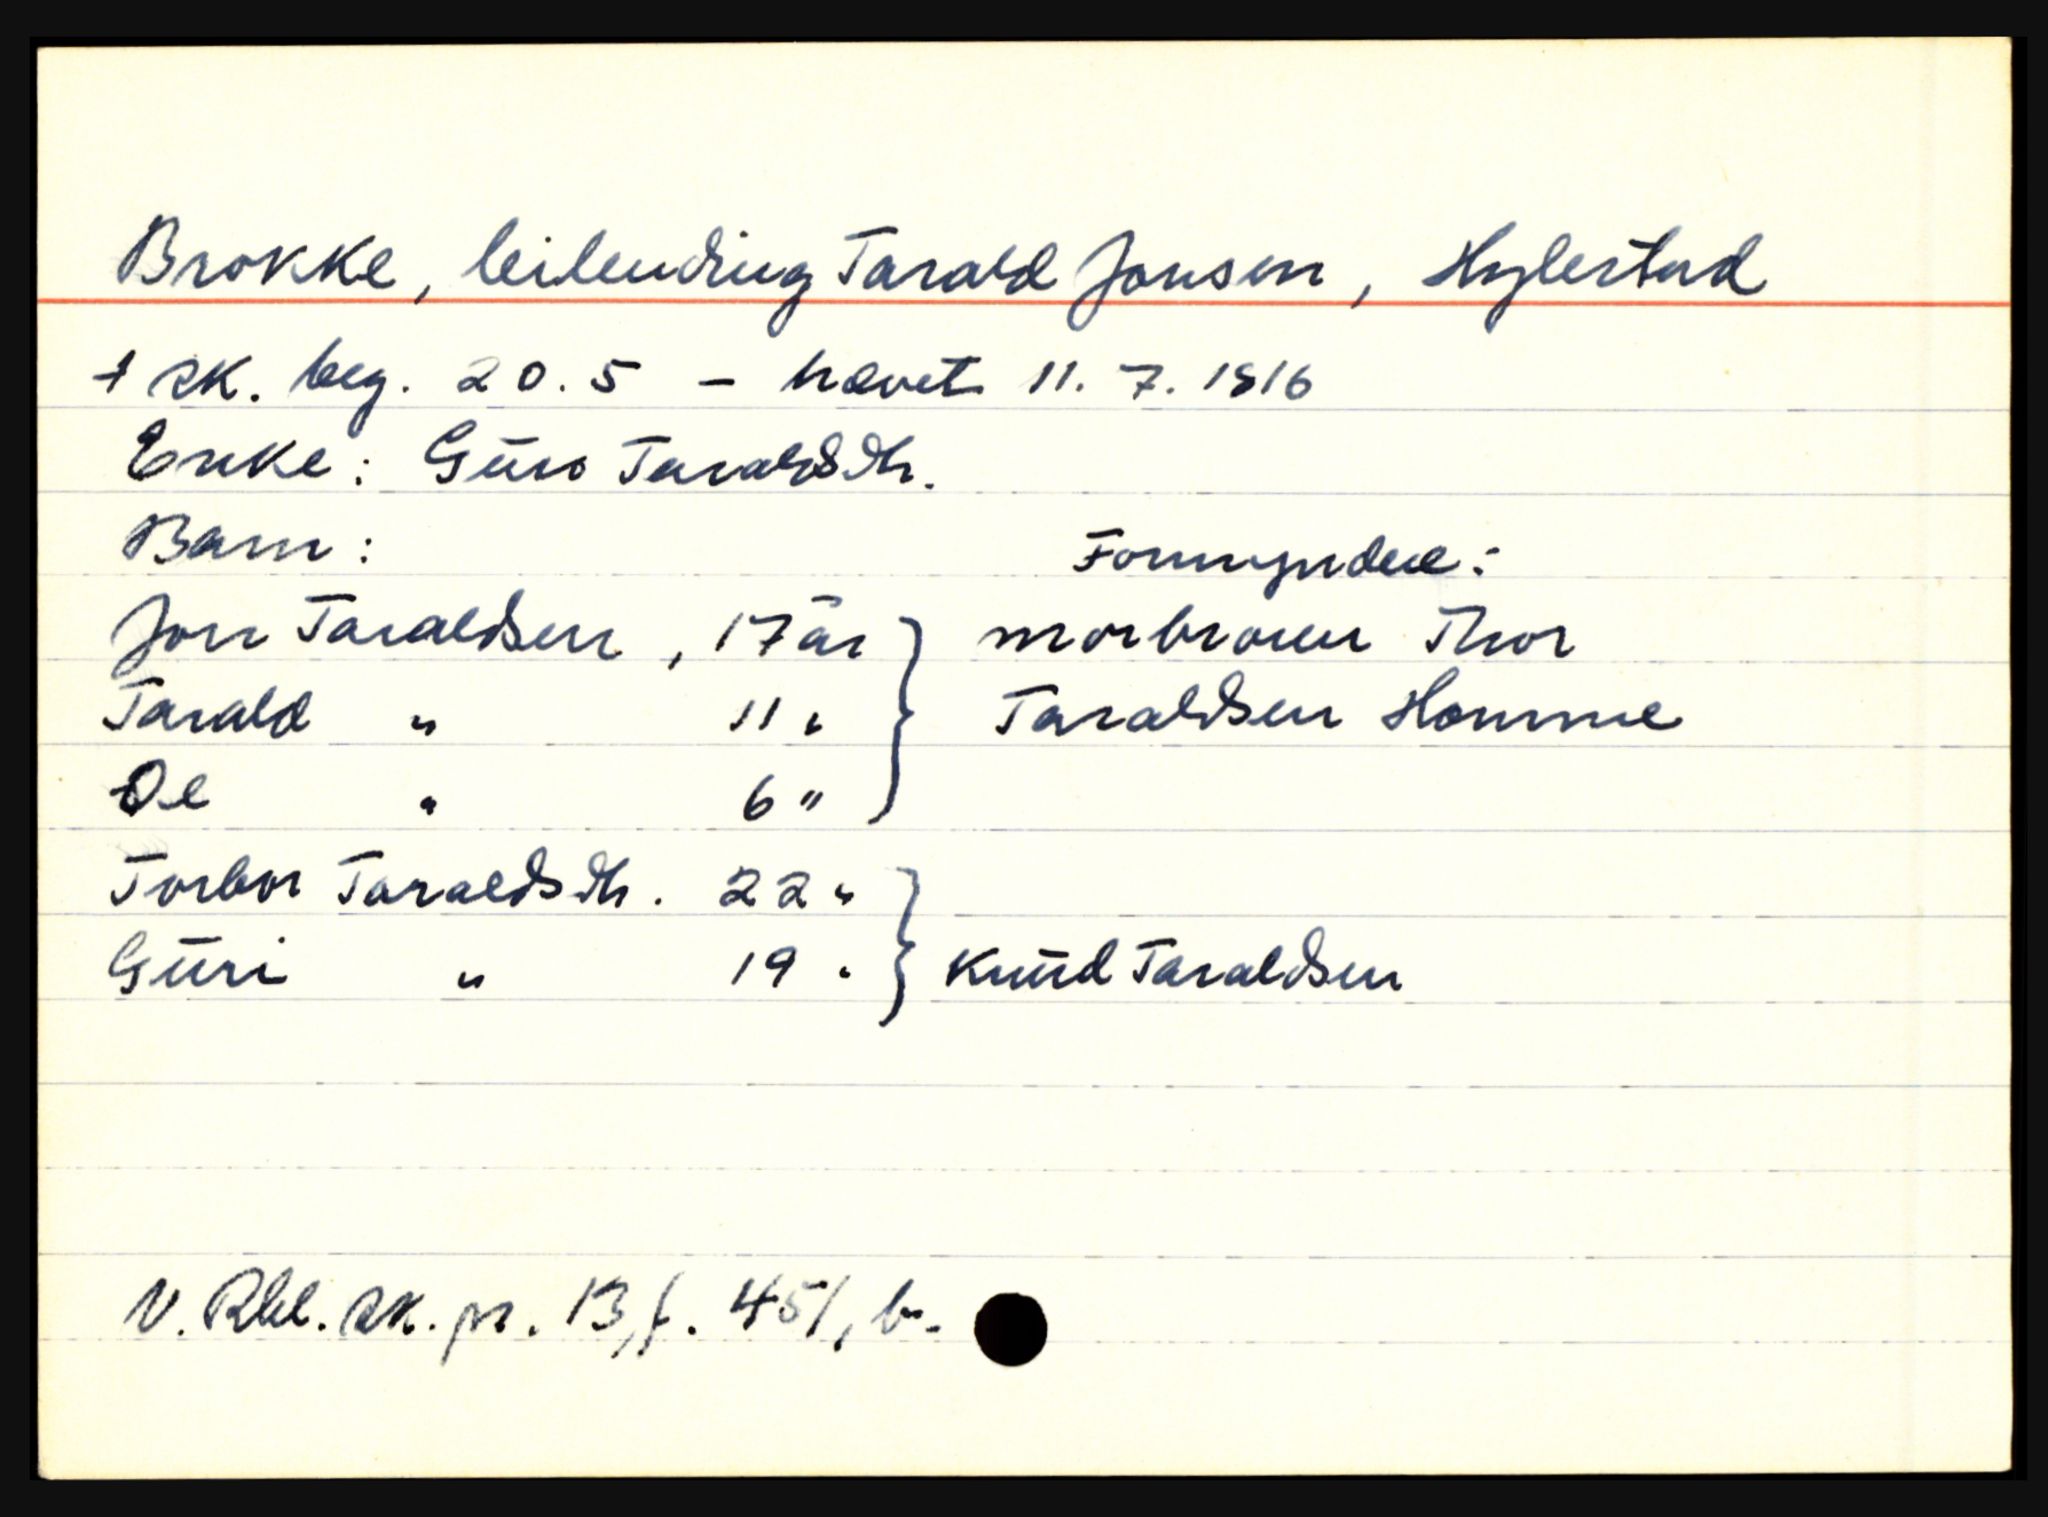 Brokke, leilending Tarald Jonsen, Hylestad
+ sk. beg. 20.5 - hævet 11.7.1816
Enke: Guro Taraldsdtr.
Barn: Formyndere:
Jon Taraldsen, 17 år } morbroren Thor
Tarald " 11 " } Taraldsen Homme
Ole " 6 " }
Torbor Taraldsdtr. 22 " }
Guri " 19 " } Knud Taraldsen
N. Rbl. sk. pr. 13, f. 451, b.